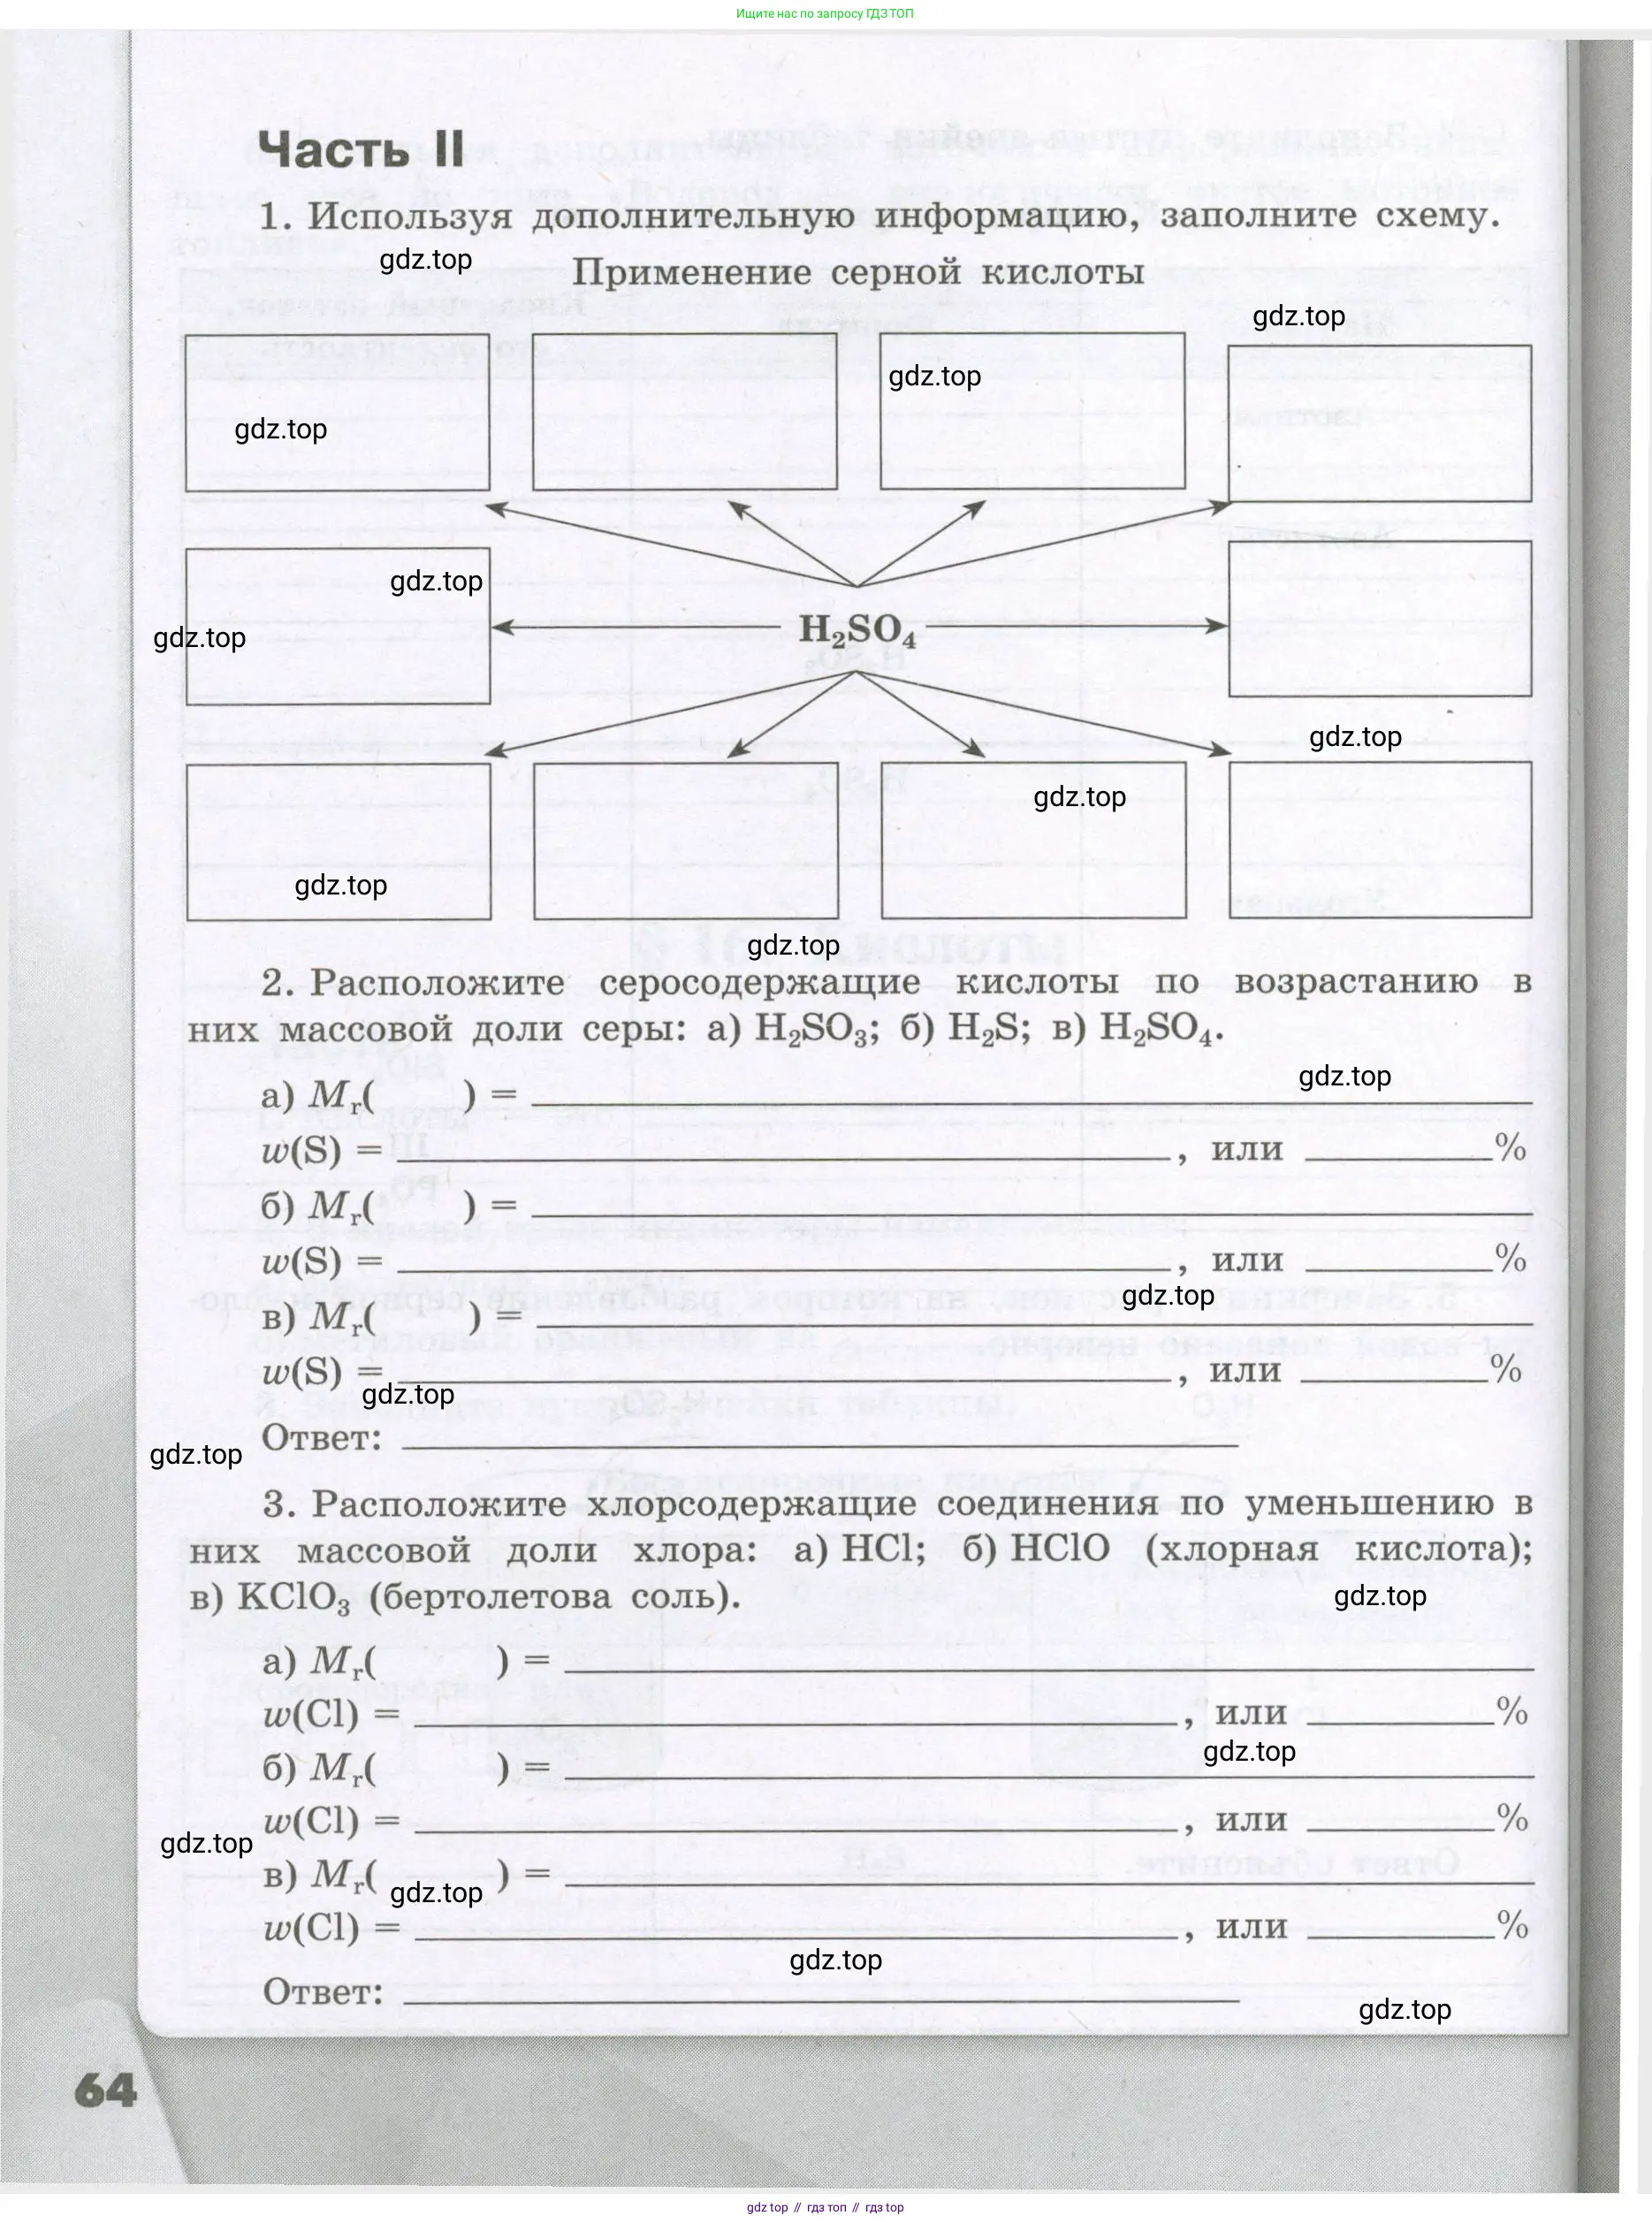 Ищите нас по запросу ГДЗ ТОП
Часть II
1. Используя дополнительную информацию, заполните схему.
gdz.top
Применение серной кислоты
gdz.top
gdz.top
gdz.top
gdz.top
gdz.top
H₂SO₄
gdz.top
gdz.top
gdz.top
gdz.top
2. Расположите серосодержащие кислоты по возрастанию в
них массовой доли серы: а) H₂SO₃; б) H₂S; в) H₂SO₄.
gdz.top
а) Mᵣ( ) = ____
w(S) = ____, или ____%
б) Mᵣ( ) = ____
w(S) = ____, или ____%
gdz.top
в) Mᵣ( ) = ____
w(S) = ____, или ____%
gdz.top
Ответ: ____
gdz.top
3. Расположите хлорсодержащие соединения по уменьшению в
них массовой доли хлора: а) HCl; б) HClO (хлорная кислота);
в) KClO₃ (бертолетова соль).
gdz.top
а) Mᵣ( ) = ____
w(Cl) = ____, или ____%
gdz.top
б) Mᵣ( ) = ____
w(Cl) = ____, или ____%
gdz.top
в) Mᵣ( ) = ____
gdz.top
w(Cl) = ____, или ____%
gdz.top
Ответ: ____
gdz.top
64
gdz top // гдз топ // гдз top